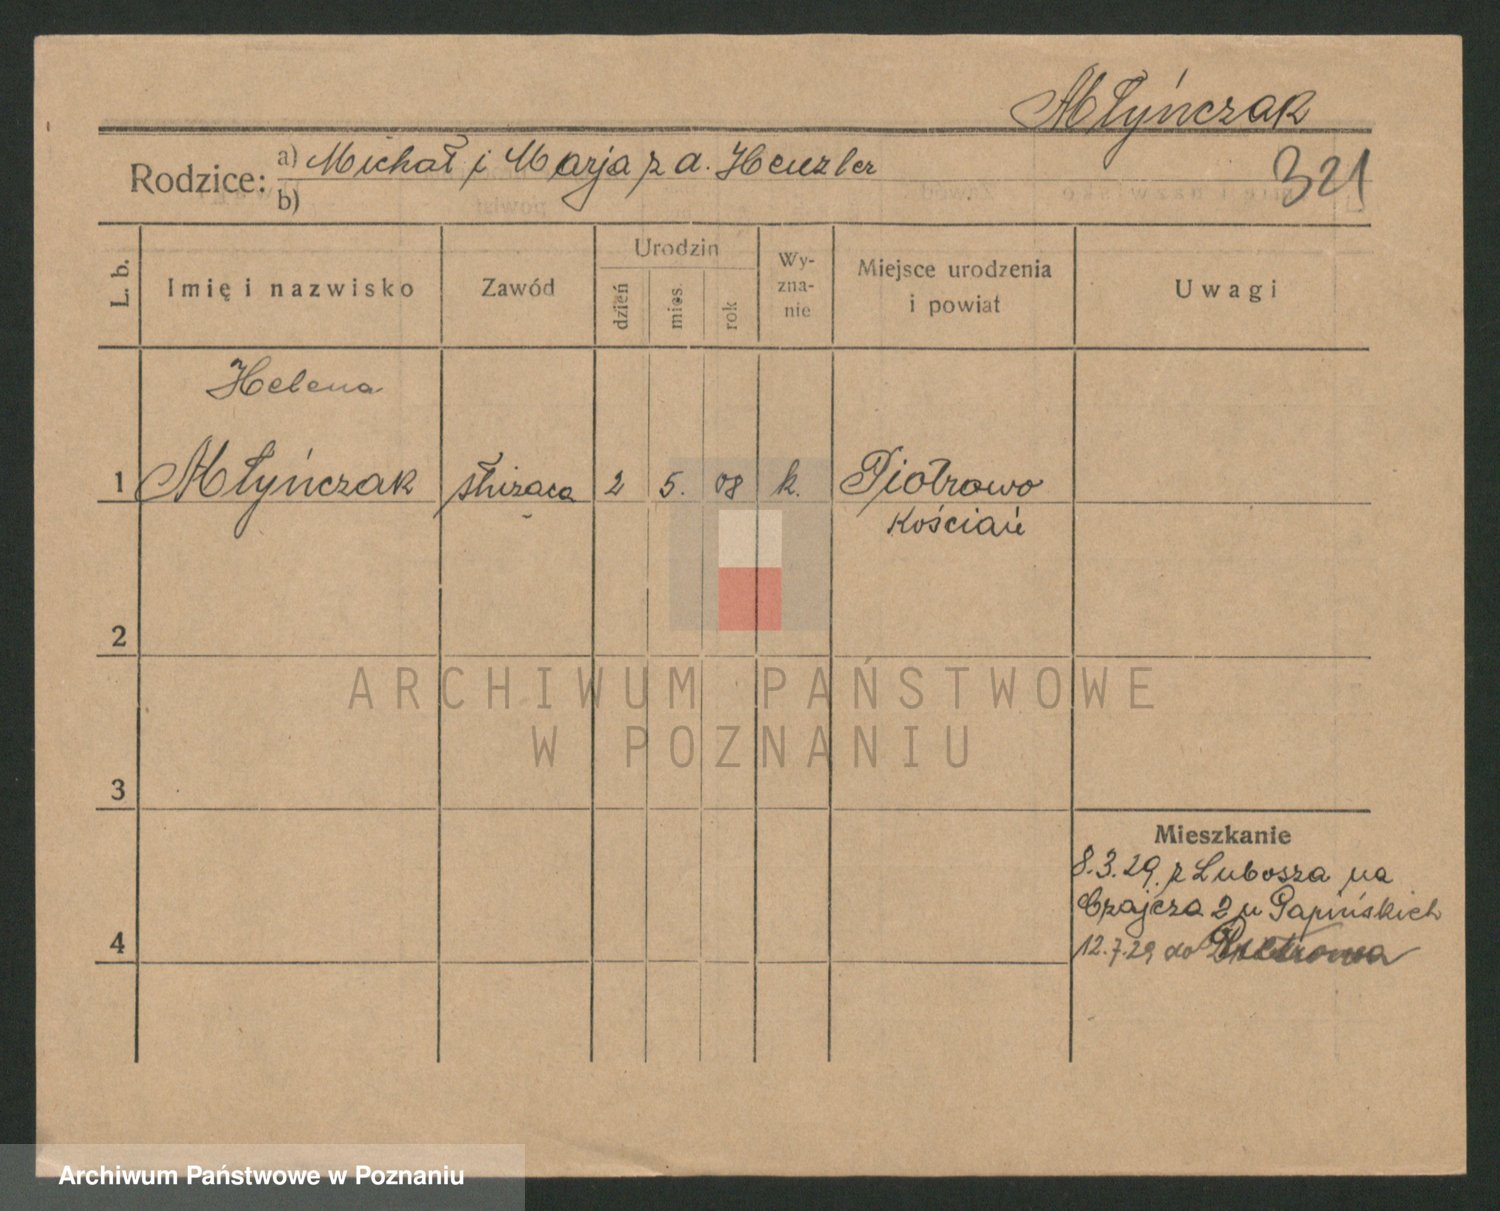 Młyńczak
Rodzice: a) Michał i Marja z d. Henzler
b)
321
L. b.
Imię i nazwisko
Zawód
Urodzin
dzień
mies.
rok
Wy-
zna-
nie
Miejsce urodzenia
i powiat
Uwagi
Helena
1 Młyńczak służąca 2 5. 08 k. Piotrowo
Kościań
2
ARCHIWUM PAŃSTWOWE
W POZNANIU
3
Mieszkanie
8.3.29. z Lubosza na
2 u Papińskich
4
12.7.29 do Piotrowa
Archiwum Państwowe w Poznaniu